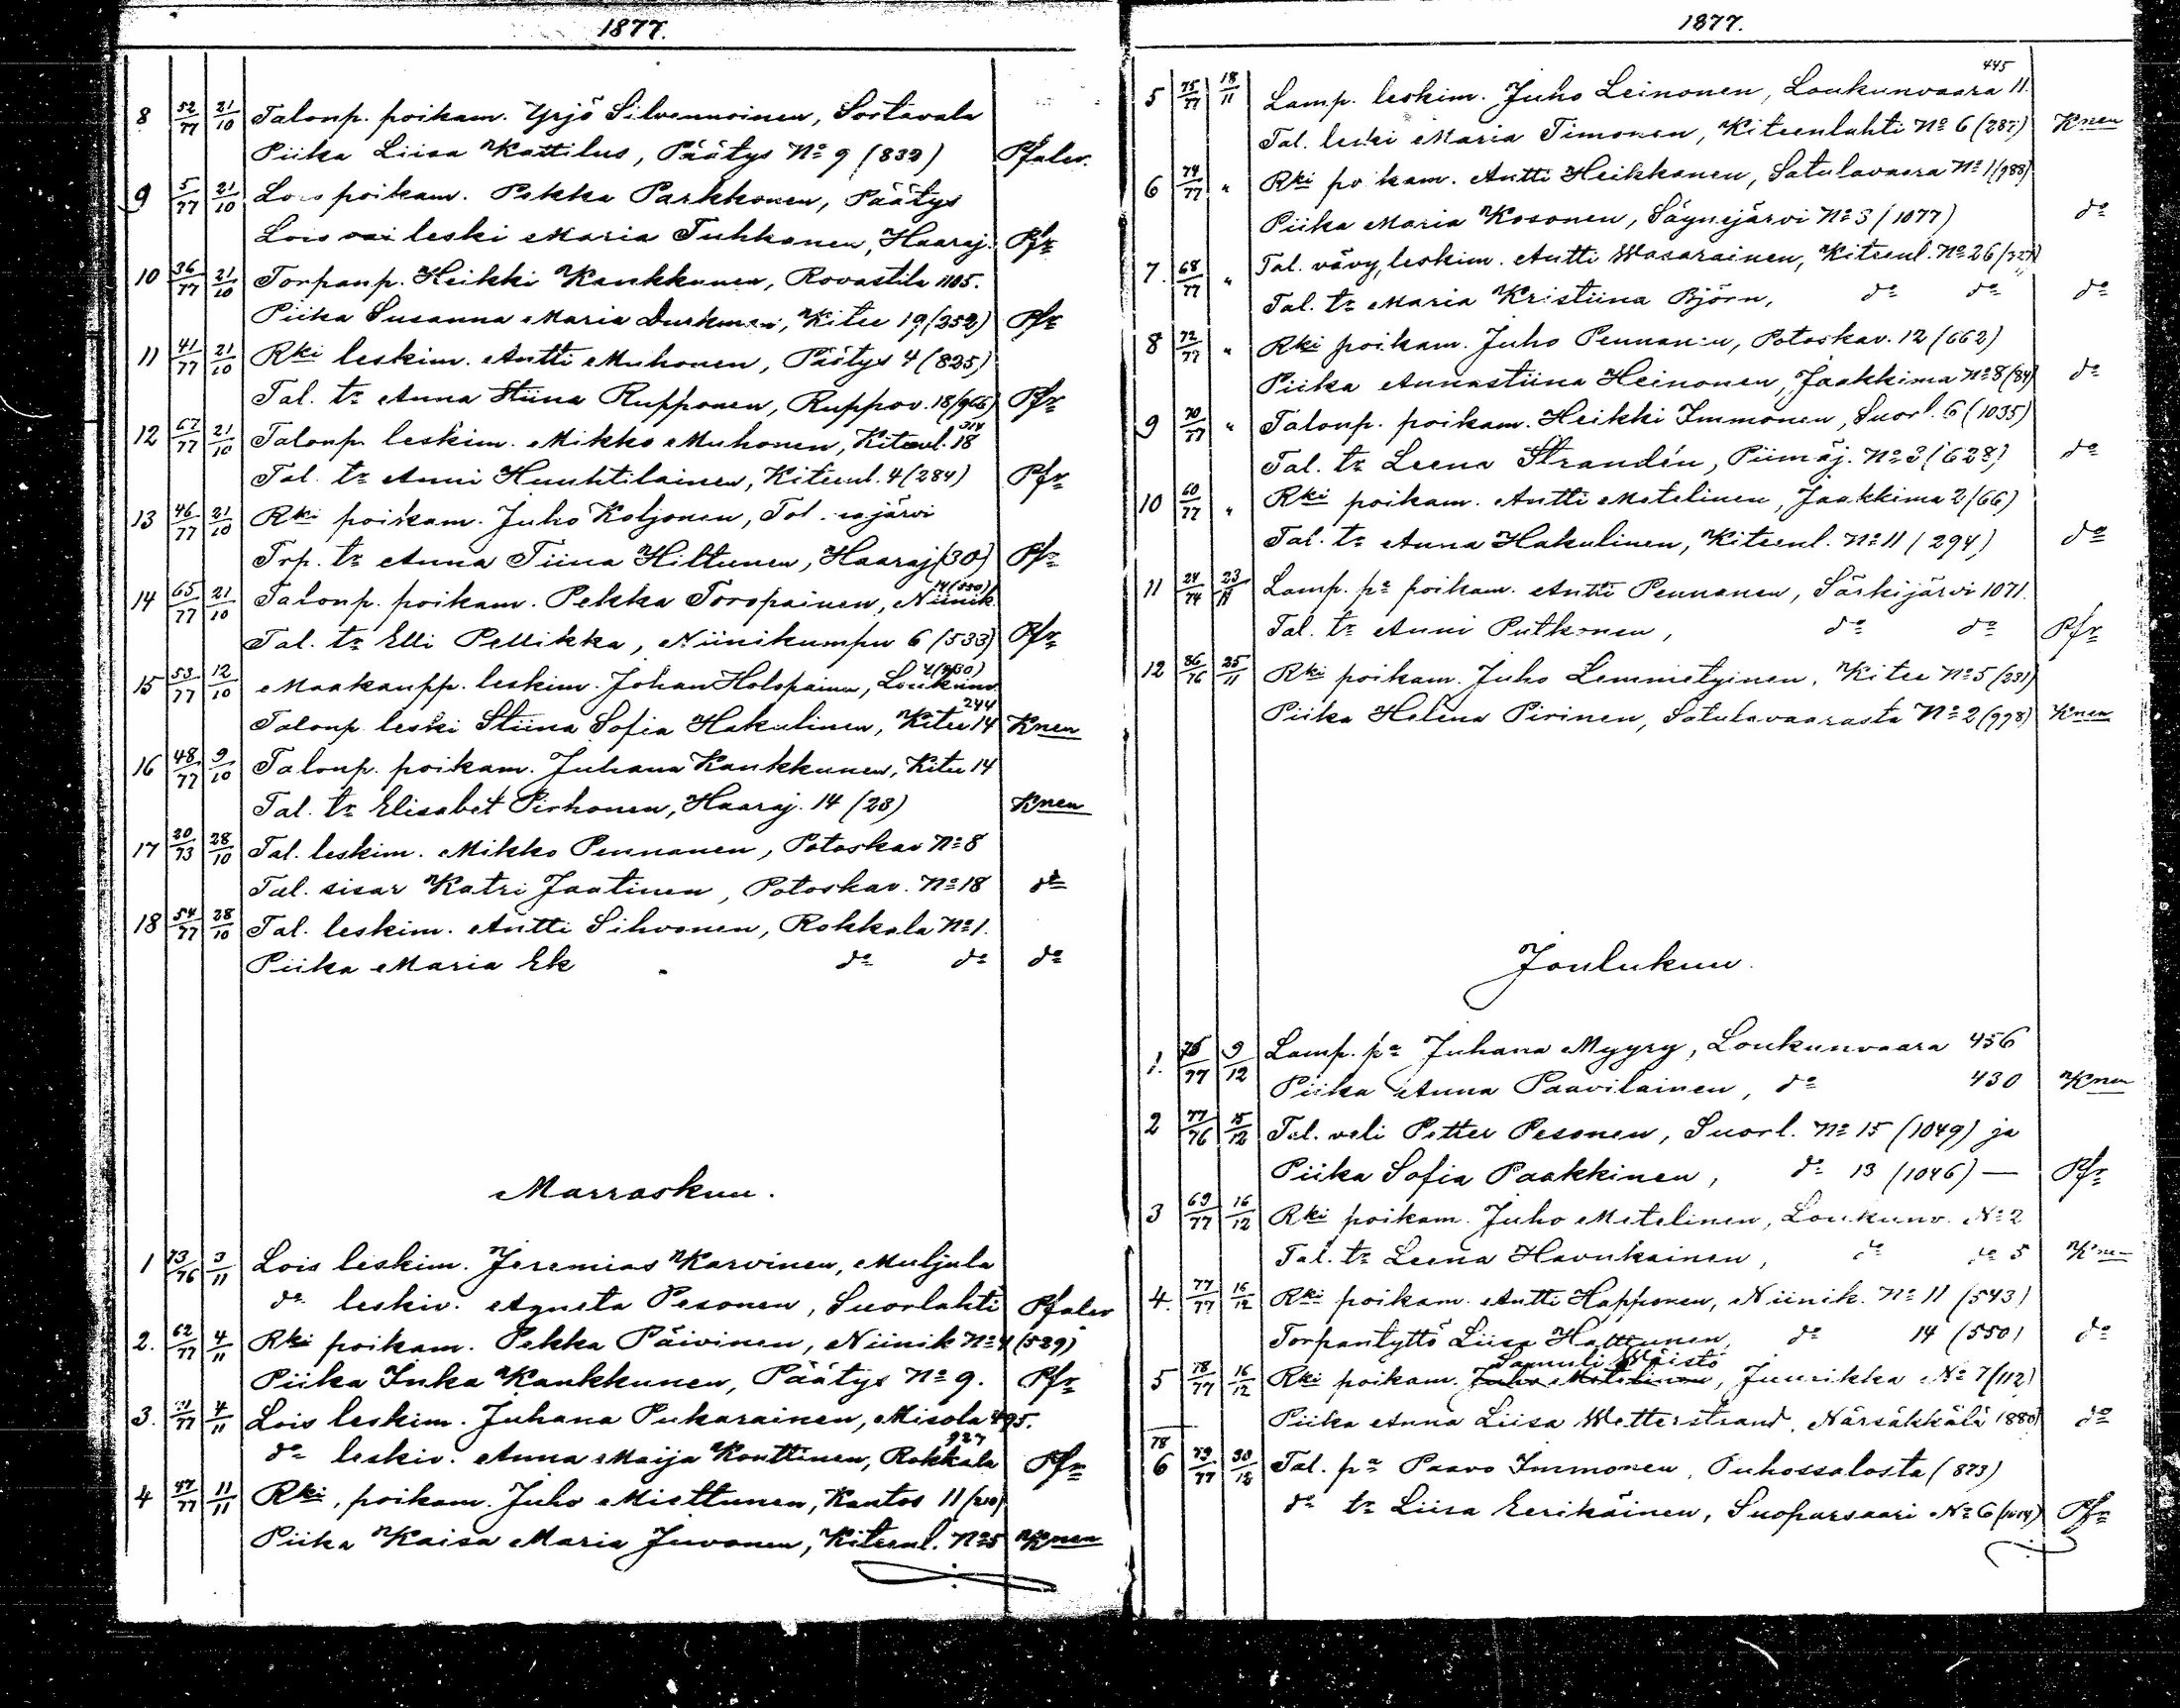 1877.
8 52/77 21/10 Talonp. poikam. Yrjö Silvennoinen, Sortavala
Piika Liisa Kattilus, Päätys No 9 (832) Pfaler.
9 5/77 21/10 Lois poikam. Pekka Parkkonen, Päätys
Lois vai leski Maria Tuhkanen, Haaraj. Pfr
10 36/77 21/10 Torpanp. Heikki Kaukkunen, Rovastila 1105.
Piika Susanna Maria Durkman, Kitee 19 (252) Pfr
11 41/77 21/10 Rki leskim. Antti Muhonen, Päätys 4 (825)
Tal. tr Anna Stiina Rupponen, Ruppov. 18 (966) Pfr
12 67/77 21/10 Talonp. leskim. Mikko Muhonen, Kiteenl. 18 314
Tal. tr Anni Huuhtilainen, Kiteenl. 4 (284) Pfr
13 46/77 21/10 Rki poikam. Juho Koljonen, Toh
Trp. tr Anna Tiina Hiltunen, Haaraj (30) Pfr
14 65/77 21/10 Talonp. poikam. Pekka Toropainen, Niinik. 14 (550)
Tal. tr Elli Pellikka, Niinikumpu 6 (533) Pfr
15 53/77 12/10 Maakaupp. leskim. Johan Holopainen, Loukunv.
Talonp. leski Stiina Sofia Hakulinen, Kitee 14 244 Knen
16 48/77 9/10 Talonp. poikam. Juhana Kaukkunen, Kitee 14
Tal. tr Elisabet Pirhonen, Haaraj. 14 (28) Knen
17 20/73 28/10 Tal. leskim. Mikko Pennanen, Potoskav No 8
Tal. sisar Katri Jaatinen, Potoskav. No 18 do
18 54/77 28/10 Tal. leskim. Antti Sihvonen, Rokkala No 1.
Piika Maria Ek do do do
Marraskuu.
1 73/76 3/11 Lois leskim. Jeremias Karvinen, Muljula
do leskiv. Agneta Pesonen, Suorlahti Pfaler
2. 62/77 4/11 Rki poikam. Pekka Päivinen, Niinik No 4 (529)
Piika Inka Kaukkunen, Päätys No 9. Pfr
3. 4/11 Lois leskim. Juhana Pukarainen, Misola 495.
do leskiv. Anna Maija Konttinen, Rokkala 927 Pfr
4 47/77 11/11 Rki, poikam. Juho Miettunen, Kantos 11 (210)
Piika Kaisa Maria Juvonen, Kiteenl. No 5 Knen
1877.
5 75/77 18/11 Lamp. leskim. Juho Leinonen, Loukunvaara 11. 445
Tal. leski Maria Timonen, Kiteenlahti No 6 (287) Knen
6 74/77 " Rki poikam. Antti Heikkanen, Satulavaara No 1 (988)
Piika Maria Kosonen, Säynejärvi No 3 (1077) do
7. 68/77 " Tal. vävy, leskim. Antti Wasarainen, Kiteenl. No 26 (327)
Tal. tr Maria Kristiina Björn, do do do
8 72/77 " Rki poikam. Juho Pennanen, Potoskav. 12 (662)
Piika Annastiina Heinonen, Jaakkima No 8 (84) do
9 70/77 " Talonp. poikam. Heikki Immonen, Suorl. 6 (1035)
Tal. tr Leena Strandén, Piimäj. No 3 (628) do
10 60/77 " Rki poikam. Antti Metelinen, Jaakkima 2 (66)
Tal. tr Anna Hakulinen, Kiteenl. No 11 (294) do
11 24/74 23/11 Lamp. pa poikam. Antti Pennanen, Särkijärvi 1071.
Tal. tr Anni Putkonen, do do Pfr
12 86/76 25/11 Rki poikam. Juho Lemmetyinen, Kitee No 5 (231)
Piika Helena Pirinen, Satulavaarasta No 2 (998) Knen
Joulukuu.
1. 76/77 9/12 Lamp. pa Juhana Myyry, Loukunvaara 456
Piika Anna Paavilainen, do 430 Knen
2 77/76 15/12 Tal. veli Petter Pesonen, Suorl. No 15 (1049) ja
Piika Sofia Paakkinen, do 13 (1046) — Pfr
3 69/77 16/12 Rki poikam. Juho Metelinen, Loukunv. No 2
Tal. tr Leena Havukainen, do do 5 Knen
4. 77/77 16/12 Rki poikam. Antti Happonen, Niinik. No 11 (543)
Torpantyttö Liisa Hattunen, do 14 (550) do
Samuli Wäistö
5 78/77 16/12 Rki poikam. Juho Metelinen, Juurikka No 7 (112)
Piika Anna Liisa Wetterstrand, Närsäkkälä (880) do
78
6 79/77 Tal. pa Paavo Immonen, Puhossalosta (873)
do tr Liisa Eerikäinen, Suoparsaari No 6 Pfr